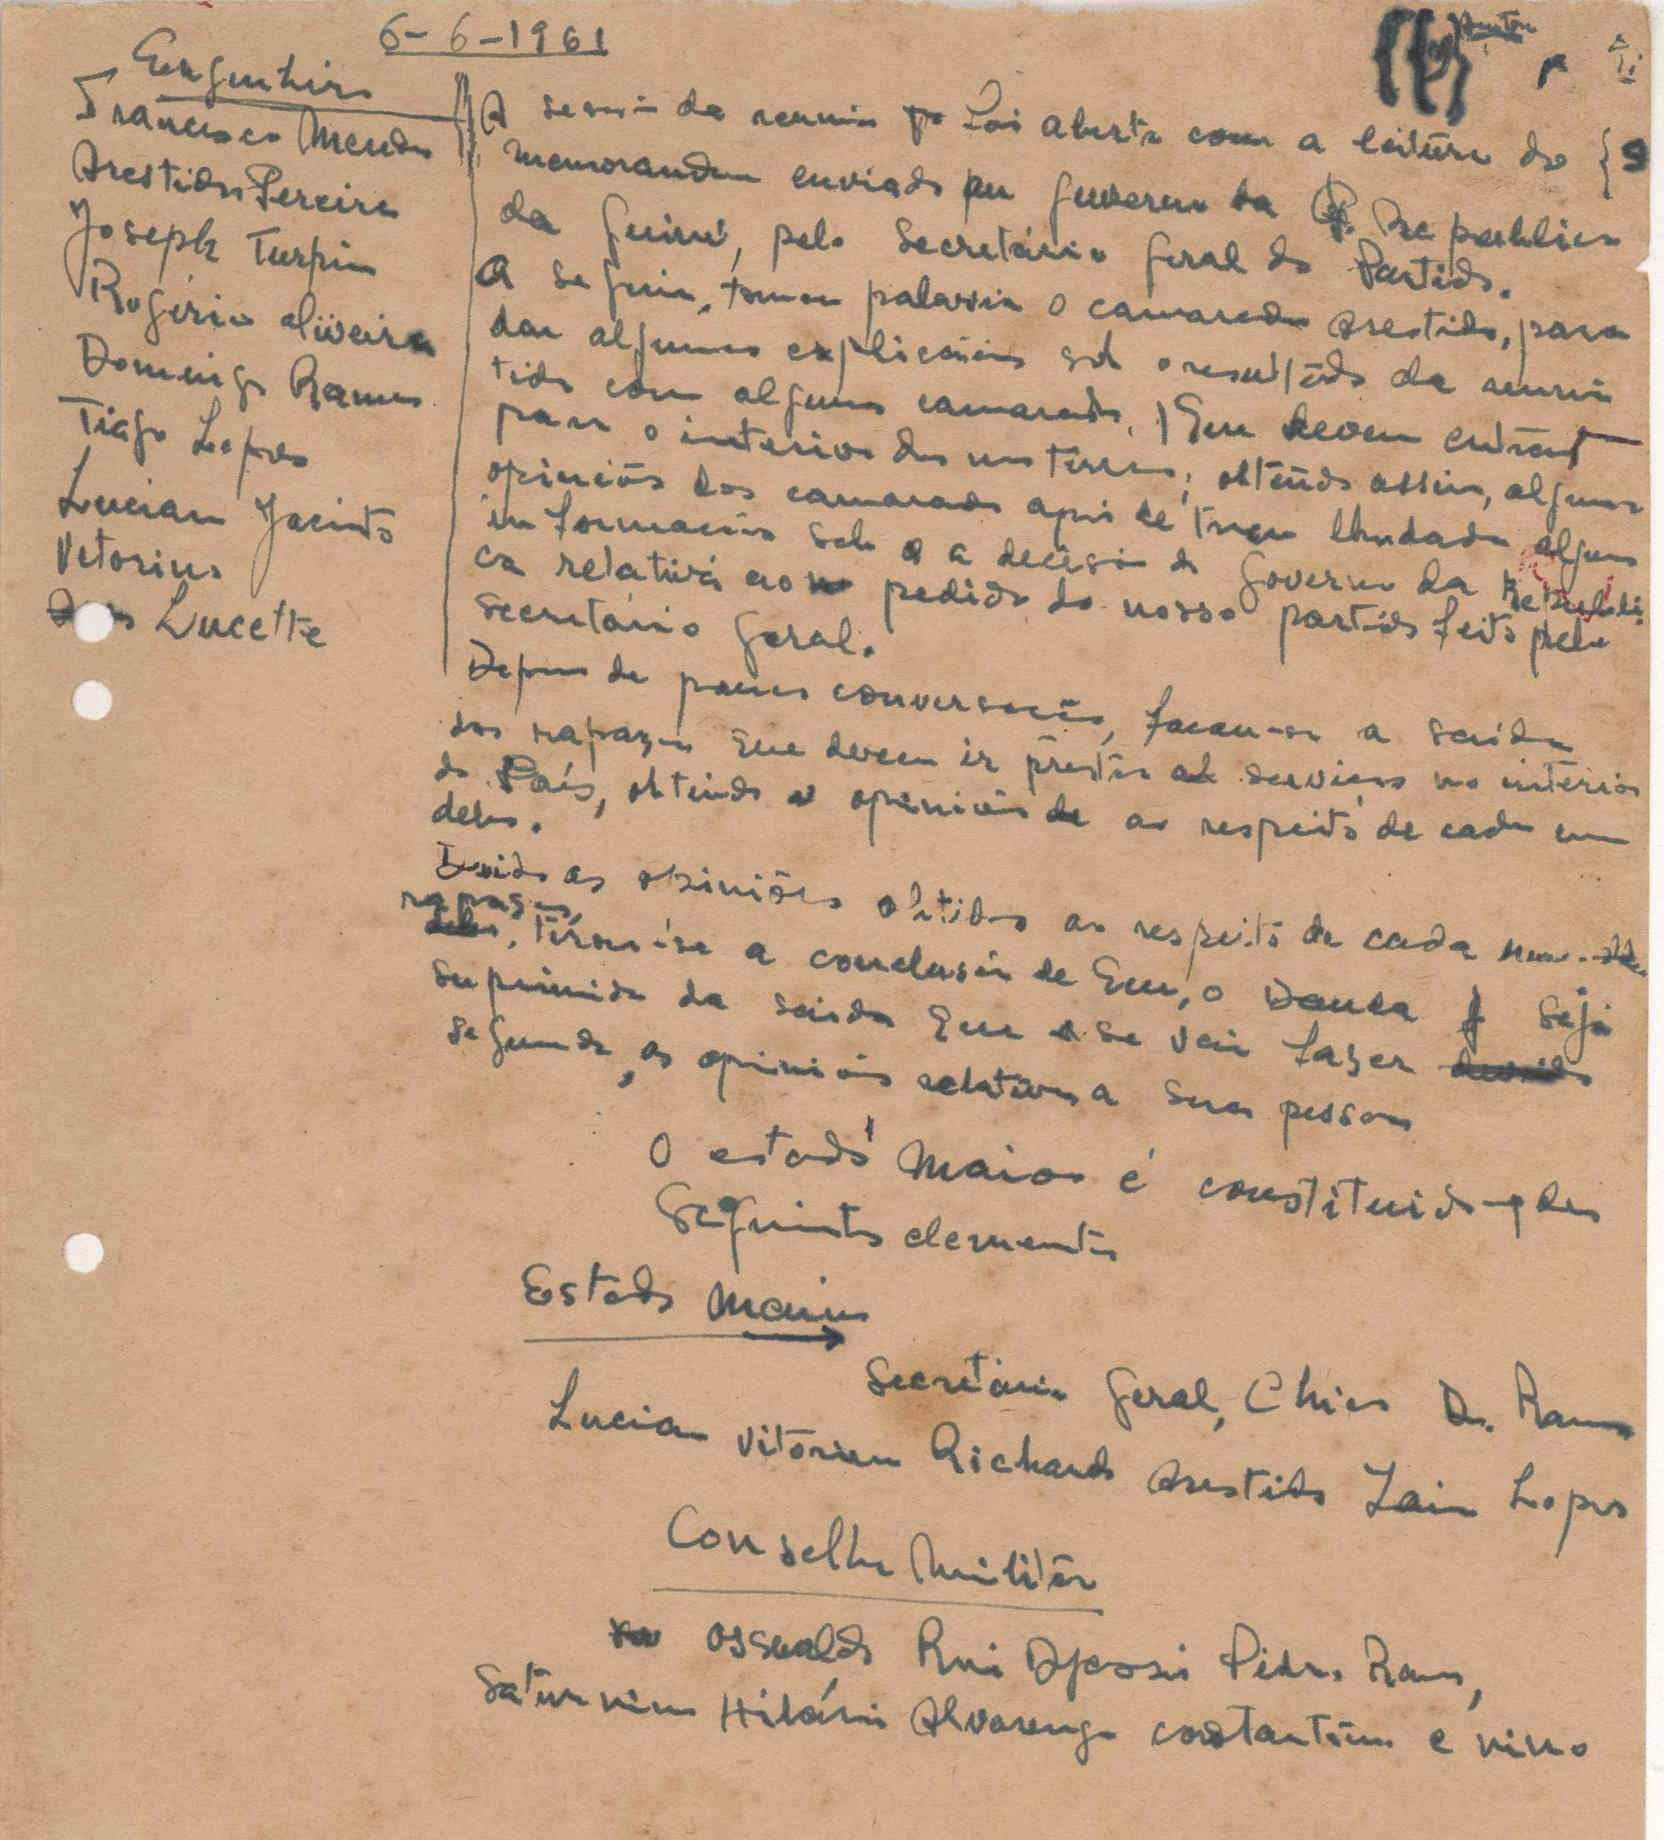 6-6-1961
Engenheiro
Francisco Mendes
Arestides Pereira
Joseph Turpin
Rogério oliveira
Domingo Ramos
Tiago Lopes
Lucian Jacinto
Vetorino
Lucette
A sessão da reunião foi aberta com a leitura do
memorandum enviado pu guverno da Republica
da Guiné, pelo Secretário Geral do Partido.
A seguir, tomou palavra o camarada Arestides, para
dar algumas explicações sob o resultado da reunião
tida com alguns camaradas, que devem entrar
para o interior das terras, obtendo assim, algumas
opiniões dos camaradas após de terem algumas
informações sob a decisão do Governo da Republi
ca relativa ao pedido do nosso partido feito pelo
secretário Geral.
Depois de poucas conversações, focou-se a saida
dos rapazes que devem ir prestar serviços no interior
do País, obtendo opiniões de ao respeito de cada um
deles.
Devido as opiniões obtidas ao respeito de cada
rapazes, tirou-se a conclusão de que, o Dauda seja
suprimido da saida que se vai fazer
segundo, as opiniões relativas a sua pessoa
O estado Maior é constituido pelos
Seguintes elementos
Estado Maior
Secretário Geral, Chico D. Ramos
Lucian Vitorino Richard Arestides Lopes
Conselho Militar
Osvaldo Rui Djassi Pedro Ramos,
Saturnino Hilário Alvarenga constantino e nino